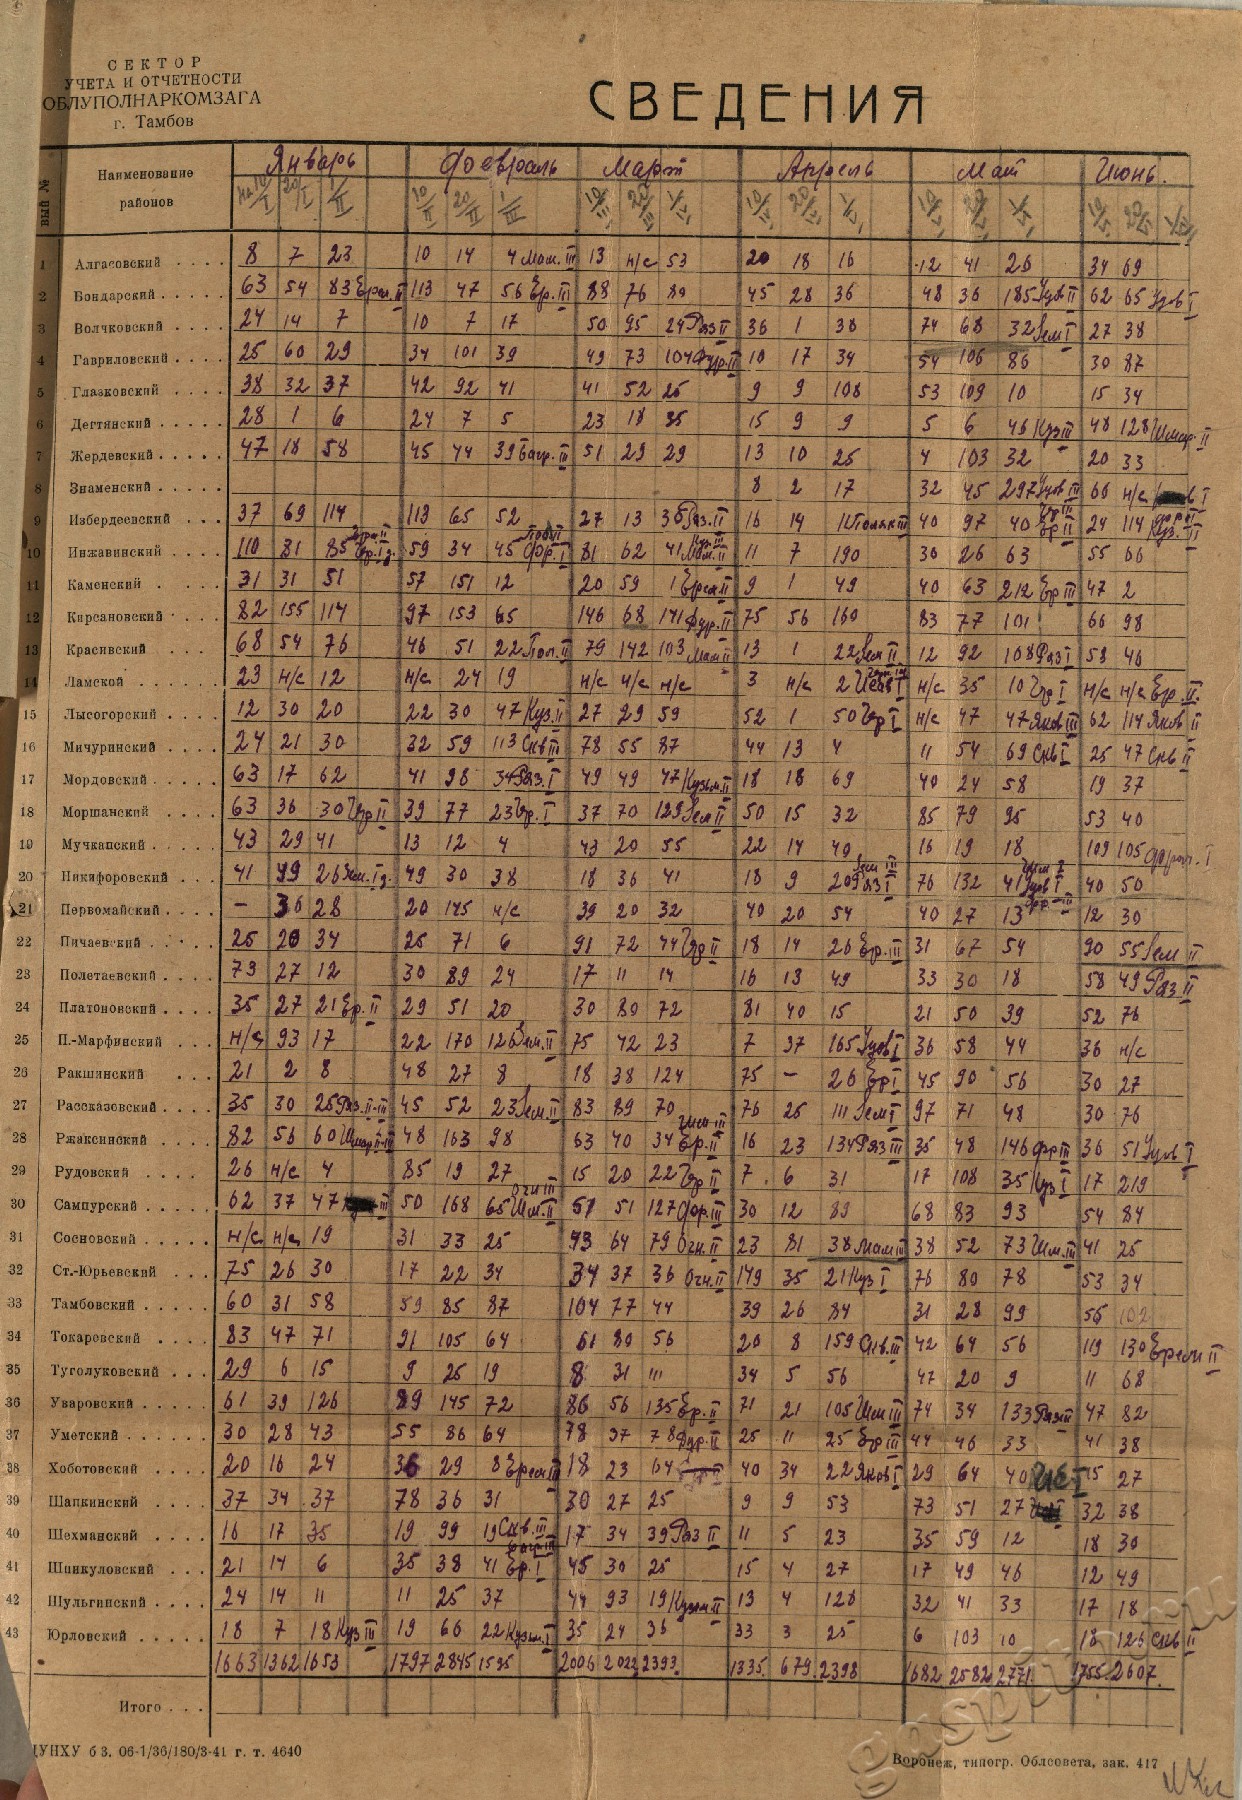 СЕКТОР
УЧЕТА И ОТЧЕТНОСТИ
ОБЛУПОЛНАРКОМЗАГА
г. Тамбов
СВЕДЕНИЯ
вый №
Наименование районов
Январь Февраль Март Апрель Май Июнь.
1 Алгасовский 8 7 23 10 14 4 Мам. III 13 н/с 53 20 18 16 12 41 26 34 69
2 Бондарский 63 54 83 Ерем. II 113 47 56 Ер. III 88 76 89 45 28 36 48 36 185 Гуов II 62 65 Гуов I
3 Волчковский 24 14 7 10 7 17 50 95 24 Ряз II 36 1 38 74 68 32 Зем I 27 38
4 Гавриловский 25 60 29 34 101 39 49 73 104 Фур. II 10 17 34 54 106 86 30 87
5 Глазковский 38 32 37 42 92 41 41 52 26 9 9 108 53 109 10 15 34
6 Дегтянский 28 1 6 24 7 5 23 18 35 15 9 9 5 6 46 Куз III 48 128 Шмар. II
7 Жердевский 47 18 58 45 44 39 Багр. III 51 29 29 13 10 25 4 103 32 20 33
8 Знаменский 8 2 17 32 45 297 III 66 н/с I
9 Избердеевский 37 69 114 113 65 52 27 13 36 Ряз. II 16 14 40 97 40 Гр II 24 114
10 Инжавинский 110 81 85 59 34 45 Фр. I 81 62 41 Мам. II 11 7 190 30 26 63 55 66
11 Каменский 31 31 51 57 151 12 20 59 1 Ерем II 9 1 49 40 63 212 Гр III 47 2
12 Кирсановский 82 155 114 97 153 65 146 68 141 Фур. II 75 56 160 83 77 101 66 98
13 Красивский 68 54 76 46 51 22 Поп. II 79 142 103 Мам II 13 1 22 Зем II 12 92 108 Ряз I 58 46
14 Ламской 23 н/с 12 н/с 24 19 н/с н/с н/с 3 н/с 2 н/с 35 10 Гр I н/с н/с Гр. II
15 Лысогорский 12 30 20 22 30 47 Куз. II 27 29 59 52 1 50 Гр I н/с 47 47 Яков III 62 114 Яков II
16 Мичуринский 24 21 30 32 59 113 Скв III 78 55 87 44 13 4 11 54 69 Скв I 25 47 Скв II
17 Мордовский 63 17 62 41 98 34 Ряз. I 49 49 47 Кузьм. II 18 18 69 40 24 58 19 37
18 Моршанский 63 36 30 Гр II 39 77 23 Гр. I 37 70 129 Зем II 50 15 32 85 79 95 53 40
19 Мучкапский 43 29 41 13 12 4 43 20 55 22 14 40 16 19 18 109 105 I
20 Никифоровский 41 99 26 49 30 38 18 36 41 18 9 209 Ряз I 76 132 41 40 50
21 Первомайский — 36 28 20 145 н/с 39 20 32 40 20 54 40 27 13 12 30
22 Пичаевский 25 20 34 25 71 6 91 72 44 Гр II 18 14 26 Ер. III 31 67 54 90 55 Зем II
23 Полетаевский 79 27 12 30 89 24 17 11 14 16 13 49 33 30 18 58 49 Ряз II
24 Платоновский 35 27 21 Ер. II 29 51 20 30 80 72 81 40 15 21 50 39 52 76
25 П.-Марфинский н/с 93 17 22 170 126 II 75 42 23 7 37 165 Гуов I 36 58 44 36 н/с
26 Ракшинский 21 2 8 48 27 8 18 38 124 75 — 26 Гр I 45 90 56 30 27
27 Рассказовский 35 30 25 Ряз. II-III 45 52 23 Зем. II 83 89 70 76 26 111 Зем I 97 71 48 30 76
28 Ржаксинский 82 56 60 Шмар II-III 48 163 98 63 40 34 Ер. II 16 23 134 Ряз III 35 48 146 Фр III 36 51 Гуов I
29 Рудовский 26 н/с 4 85 19 27 15 20 22 Гр II 7 6 31 17 108 35 Куз I 17 219
30 Сампурский 62 37 47 III 50 168 65 Шм. II 57 51 127 Фр. III 30 12 89 68 83 93 54 84
31 Сосновский н/с н/с 19 31 33 25 93 64 79 Огн. II 23 81 38 Мам III 38 52 73 Шм. III 41 25
32 Ст.-Юрьевский 75 26 30 17 22 34 34 37 36 Огн. II 149 35 21 Куз I 76 80 78 53 34
33 Тамбовский 60 31 58 59 85 87 104 77 44 39 26 84 31 28 99 56 102
34 Токаревский 83 47 71 91 105 64 61 80 56 20 8 159 Скв. III 42 64 56 119 130 Ерем II
35 Туголуковский 29 6 15 9 25 19 8 31 111 34 5 56 47 20 9 11 68
36 Уваровский 61 39 126 89 145 72 86 56 135 Ер. II 71 21 105 Шм III 74 34 133 Ряз III 47 82
37 Уметский 30 28 43 55 86 64 78 37 78 Фур. II 25 11 25 Ер III 44 46 33 41 38
38 Хоботовский 20 16 24 36 29 8 Ерем III 18 23 64 40 34 22 Яков I 29 64 40 I 15 27
39 Шапкинский 37 34 37 78 36 31 30 27 25 9 9 53 73 51 27 32 38
40 Шехманский 16 17 35 19 99 19 Скв. III 17 34 39 Ряз II 11 5 23 35 59 12 18 30
41 Шпикуловский 21 14 6 35 38 41 Ер. I 45 30 25 15 4 27 17 49 46 12 49
42 Шульгинский 24 14 11 11 25 37 44 93 19 Кузьм II 13 4 128 32 41 33 17 18
43 Юрловский 18 7 18 Куз III 19 66 22 Кузьм. I 35 24 36 33 3 25 6 103 10 18 126 Скв II
1663 1362 1653 1797 2845 1595 2006 2022 2393 1335 679 2398 1682 2582 2771 1755 2607
Итого
ЦУНХУ б 3. 06-1/36/180/3-41 г. т. 4640
Воронеж, типогр. Облсовета, зак. 417
gaspito.ru